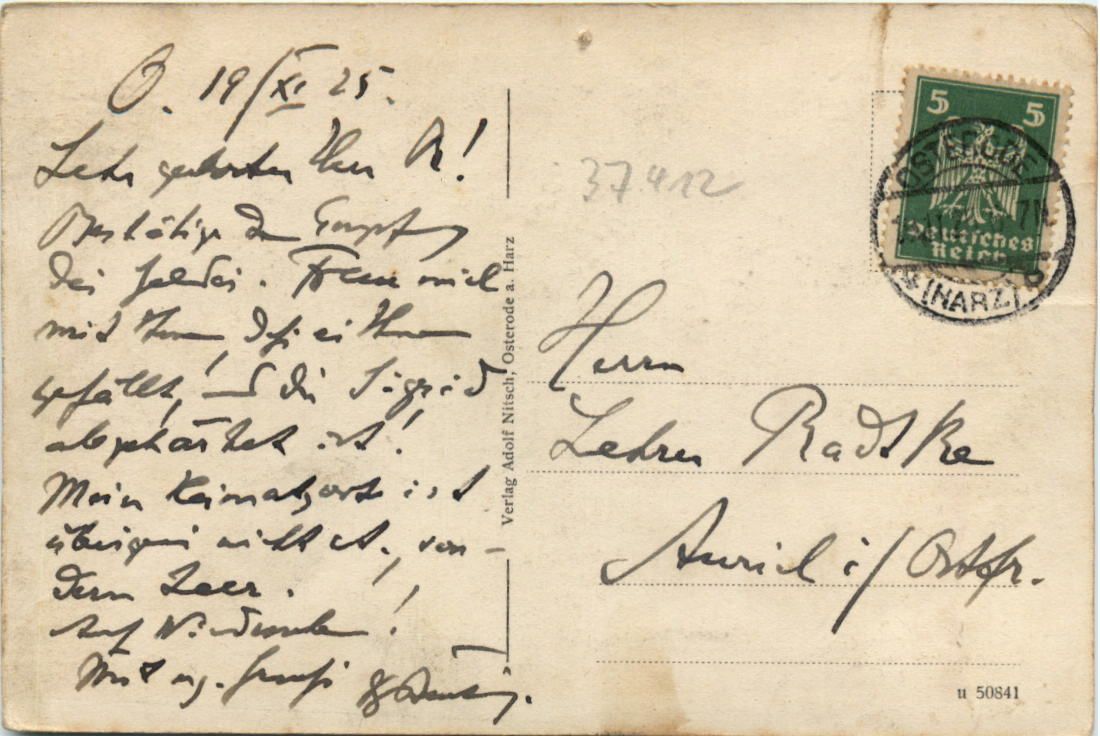 O. 19/XI 25.
Sehr geehrter Herr R!
Bestätige den Empfang
der Gelder. Freue mich
mit Ihnen, daß es Ihnen
gefällt, und die Sigrid
abgehärtet ist!
Mein Heimatsort ist
übrigens nicht O., son-
dern Leer.
Auf Wiedersehen!
Mit erg. Gruß
Verlag Adolf Nitsch, Osterode a. Harz
37412
5 5
Deutsches
Reich
OSTERODE
(HARZ)
Herrn
Lehrer Radtke
Aurich i/Ostfr.
u 50841